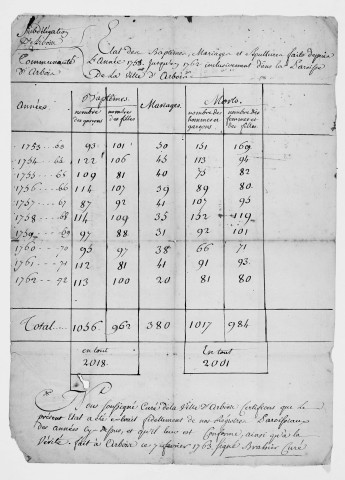 Subdélégation
D'Arbois
Communauté
d'Arbois
Etat des Baptêmes, Mariages et Sepultures faits depuis
L'année 1753 jusqu'en 1762 inclusivement dans la Paroisse
De la Ville d'Arbois
Années Baptêmes Mariages Morts
nombre des garçons nombre des filles nombre des hommes et garçons nombre des femmes et des filles
1753 93 101 30 151 169
1754 122 106 45 113 94
1755 109 81 40 75 82
1756 114 107 39 89 80
1757 87 92 41 107 95
1758 114 109 35 152 119
1759 97 88 31 92 101
1760 95 97 38 66 71
1761 112 81 41 91 93
1762 113 100 20 81 80
Total 1056 962 380 1017 984
en tout En tout
2018 2001
Nous soussigné Curé de la Ville d'Arbois Certifions que le
présent Etat a été extrait fidellement de nos Registres Paroissiaux
des années cy dessus, et qu'il leur est Conforme, ainsi qu'a la
Vérité. fait à Arbois ce 7 fevrier 1763 signé Curé